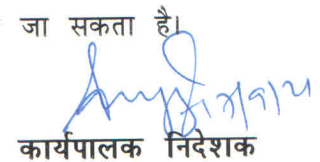 जा सकता है।
कार्यपालक निदेशक